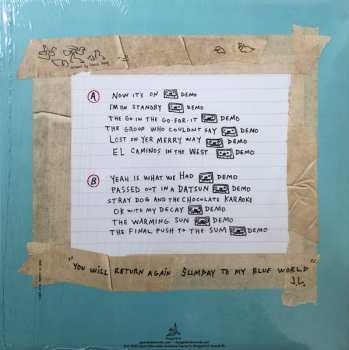 A
NOW IT'S ON DEMO
I'M ON STANDBY DEMO
THE GO IN THE GO-FOR-IT DEMO
THE GROUP WHO COULDN'T SAY DEMO
LOST ON YER MERRY WAY DEMO
EL CAMINOS IN THE WEST DEMO
B
YEAH IS WHAT WE HAD DEMO
PASSED OUT IN A DATSUN DEMO
STRAY DOG AND THE CHOCOLATE KARAOKE
OK WITH MY DECAY DEMO
THE WARMING SUN DEMO
THE FINAL PUSH TO THE SUM DEMO
"YOU WILL RETURN AGAIN SUMDAY TO MY BLUE WORLD"
J.L.